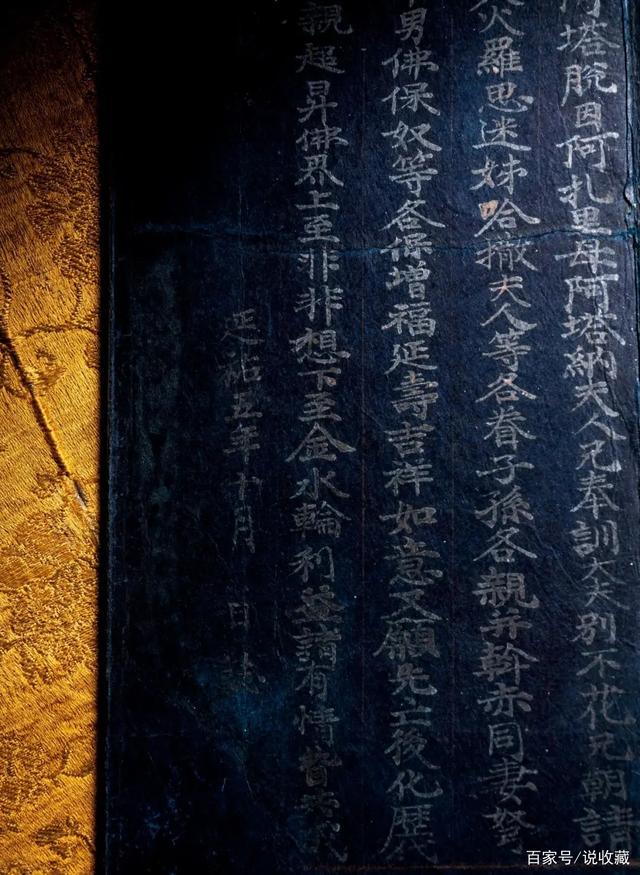 塔脱因阿扎里母阿塔納夫人兄奉訓大夫别不花兄朝請
火羅思迷姊哈撒夫人等各眷子孫各親并幹赤同妻
男佛保奴等各保增福延壽吉祥如意又願先亡後化歷代
親超昇佛界上至非非想下至金水輪利益諸有情
延祐五年十月 日誌
百家号/说收藏